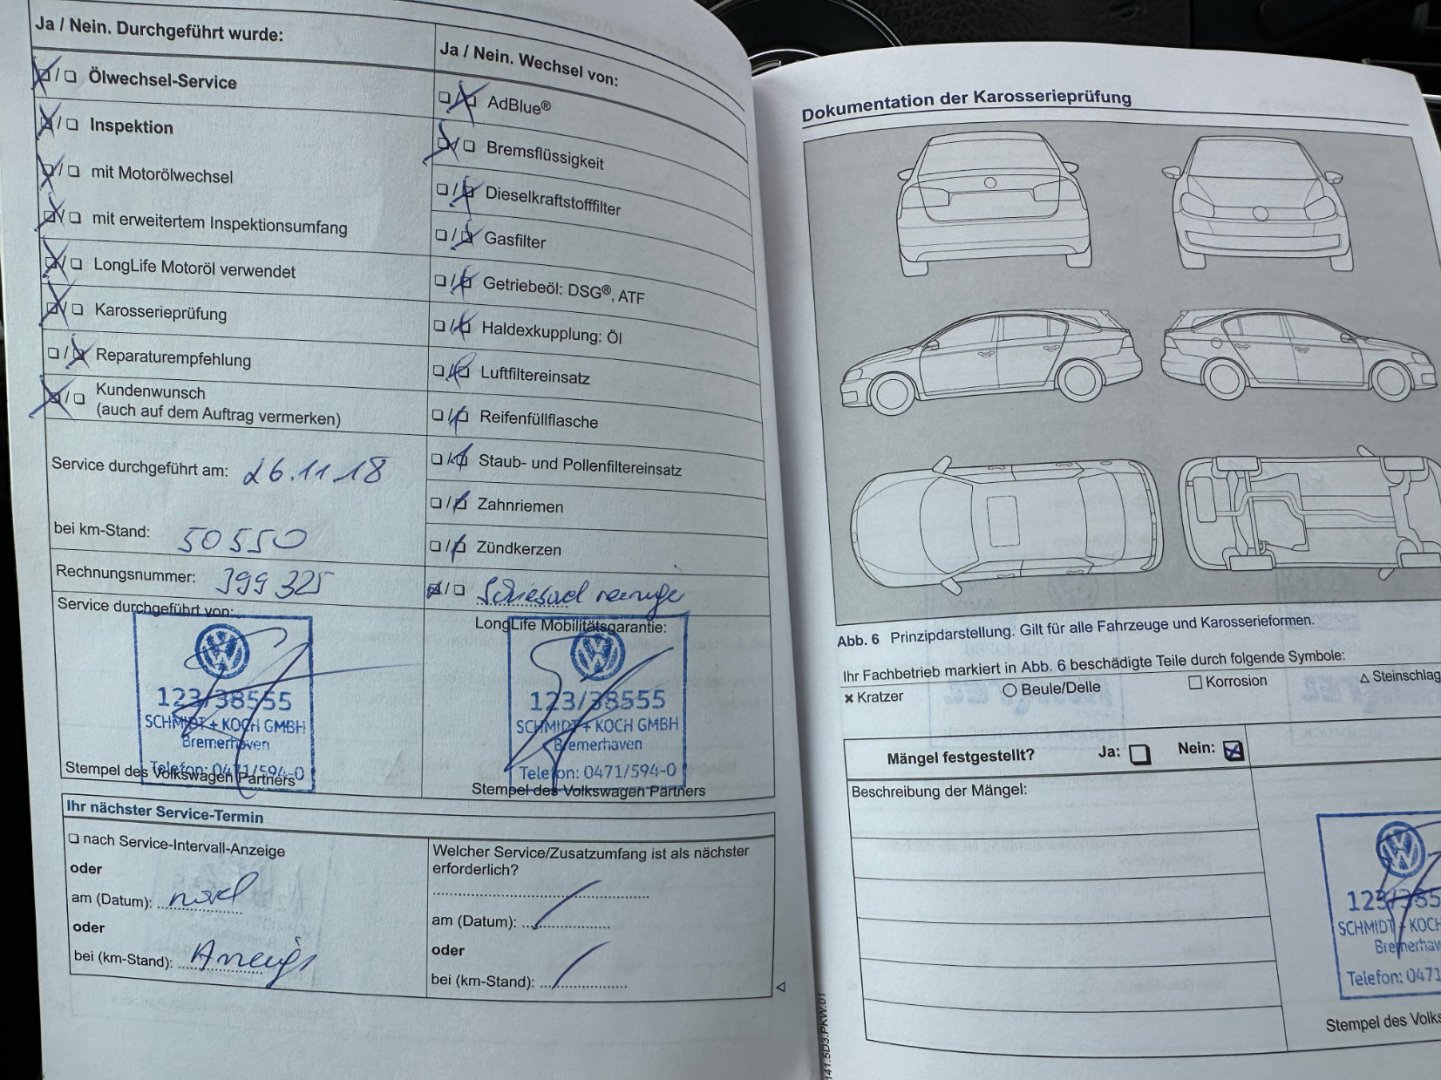 Ja / Nein. Durchgeführt wurde:
Ölwechsel-Service
Inspektion
mit Motorölwechsel
mit erweitertem Inspektionsumfang
LongLife Motoröl verwendet
Karosserieprüfung
Reparaturempfehlung
Kundenwunsch
(auch auf dem Auftrag vermerken)
Service durchgeführt am: 26.11.18
bei km-Stand: 50550
Rechnungsnummer: 399325
Service durchgeführt von:
123/38555
SCHMIDT + KOCH GMBH
Bremerhaven
Telefon: 0471/594-0
Stempel des Volkswagen Partners
Ja / Nein. Wechsel von:
AdBlue®
Bremsflüssigkeit
Dieselkraftstofffilter
Gasfilter
Getriebeöl: DSG®, ATF
Haldexkupplung: Öl
Luftfiltereinsatz
Reifenfüllflasche
Staub- und Pollenfiltereinsatz
Zahnriemen
Zündkerzen
LongLife Mobilitätsgarantie:
123/38555
SCHMIDT + KOCH GMBH
Bremerhaven
Telefon: 0471/594-0
Stempel des Volkswagen Partners
Ihr nächster Service-Termin
nach Service-Intervall-Anzeige
oder
am (Datum): nach
oder
bei (km-Stand): Anzeige
Welcher Service/Zusatzumfang ist als nächster
erforderlich?
am (Datum):
oder
bei (km-Stand):
Dokumentation der Karosserieprüfung
Abb. 6 Prinzipdarstellung. Gilt für alle Fahrzeuge und Karosserieformen.
Ihr Fachbetrieb markiert in Abb. 6 beschädigte Teile durch folgende Symbole:
Kratzer
Beule/Delle
Korrosion
Steinschlag
Mängel festgestellt? Ja: Nein:
Beschreibung der Mängel:
123/385
SCHMIDT + KOCH
Bremerhaven
Telefon: 0471
Stempel des Volks
141.5D3.PKW.01